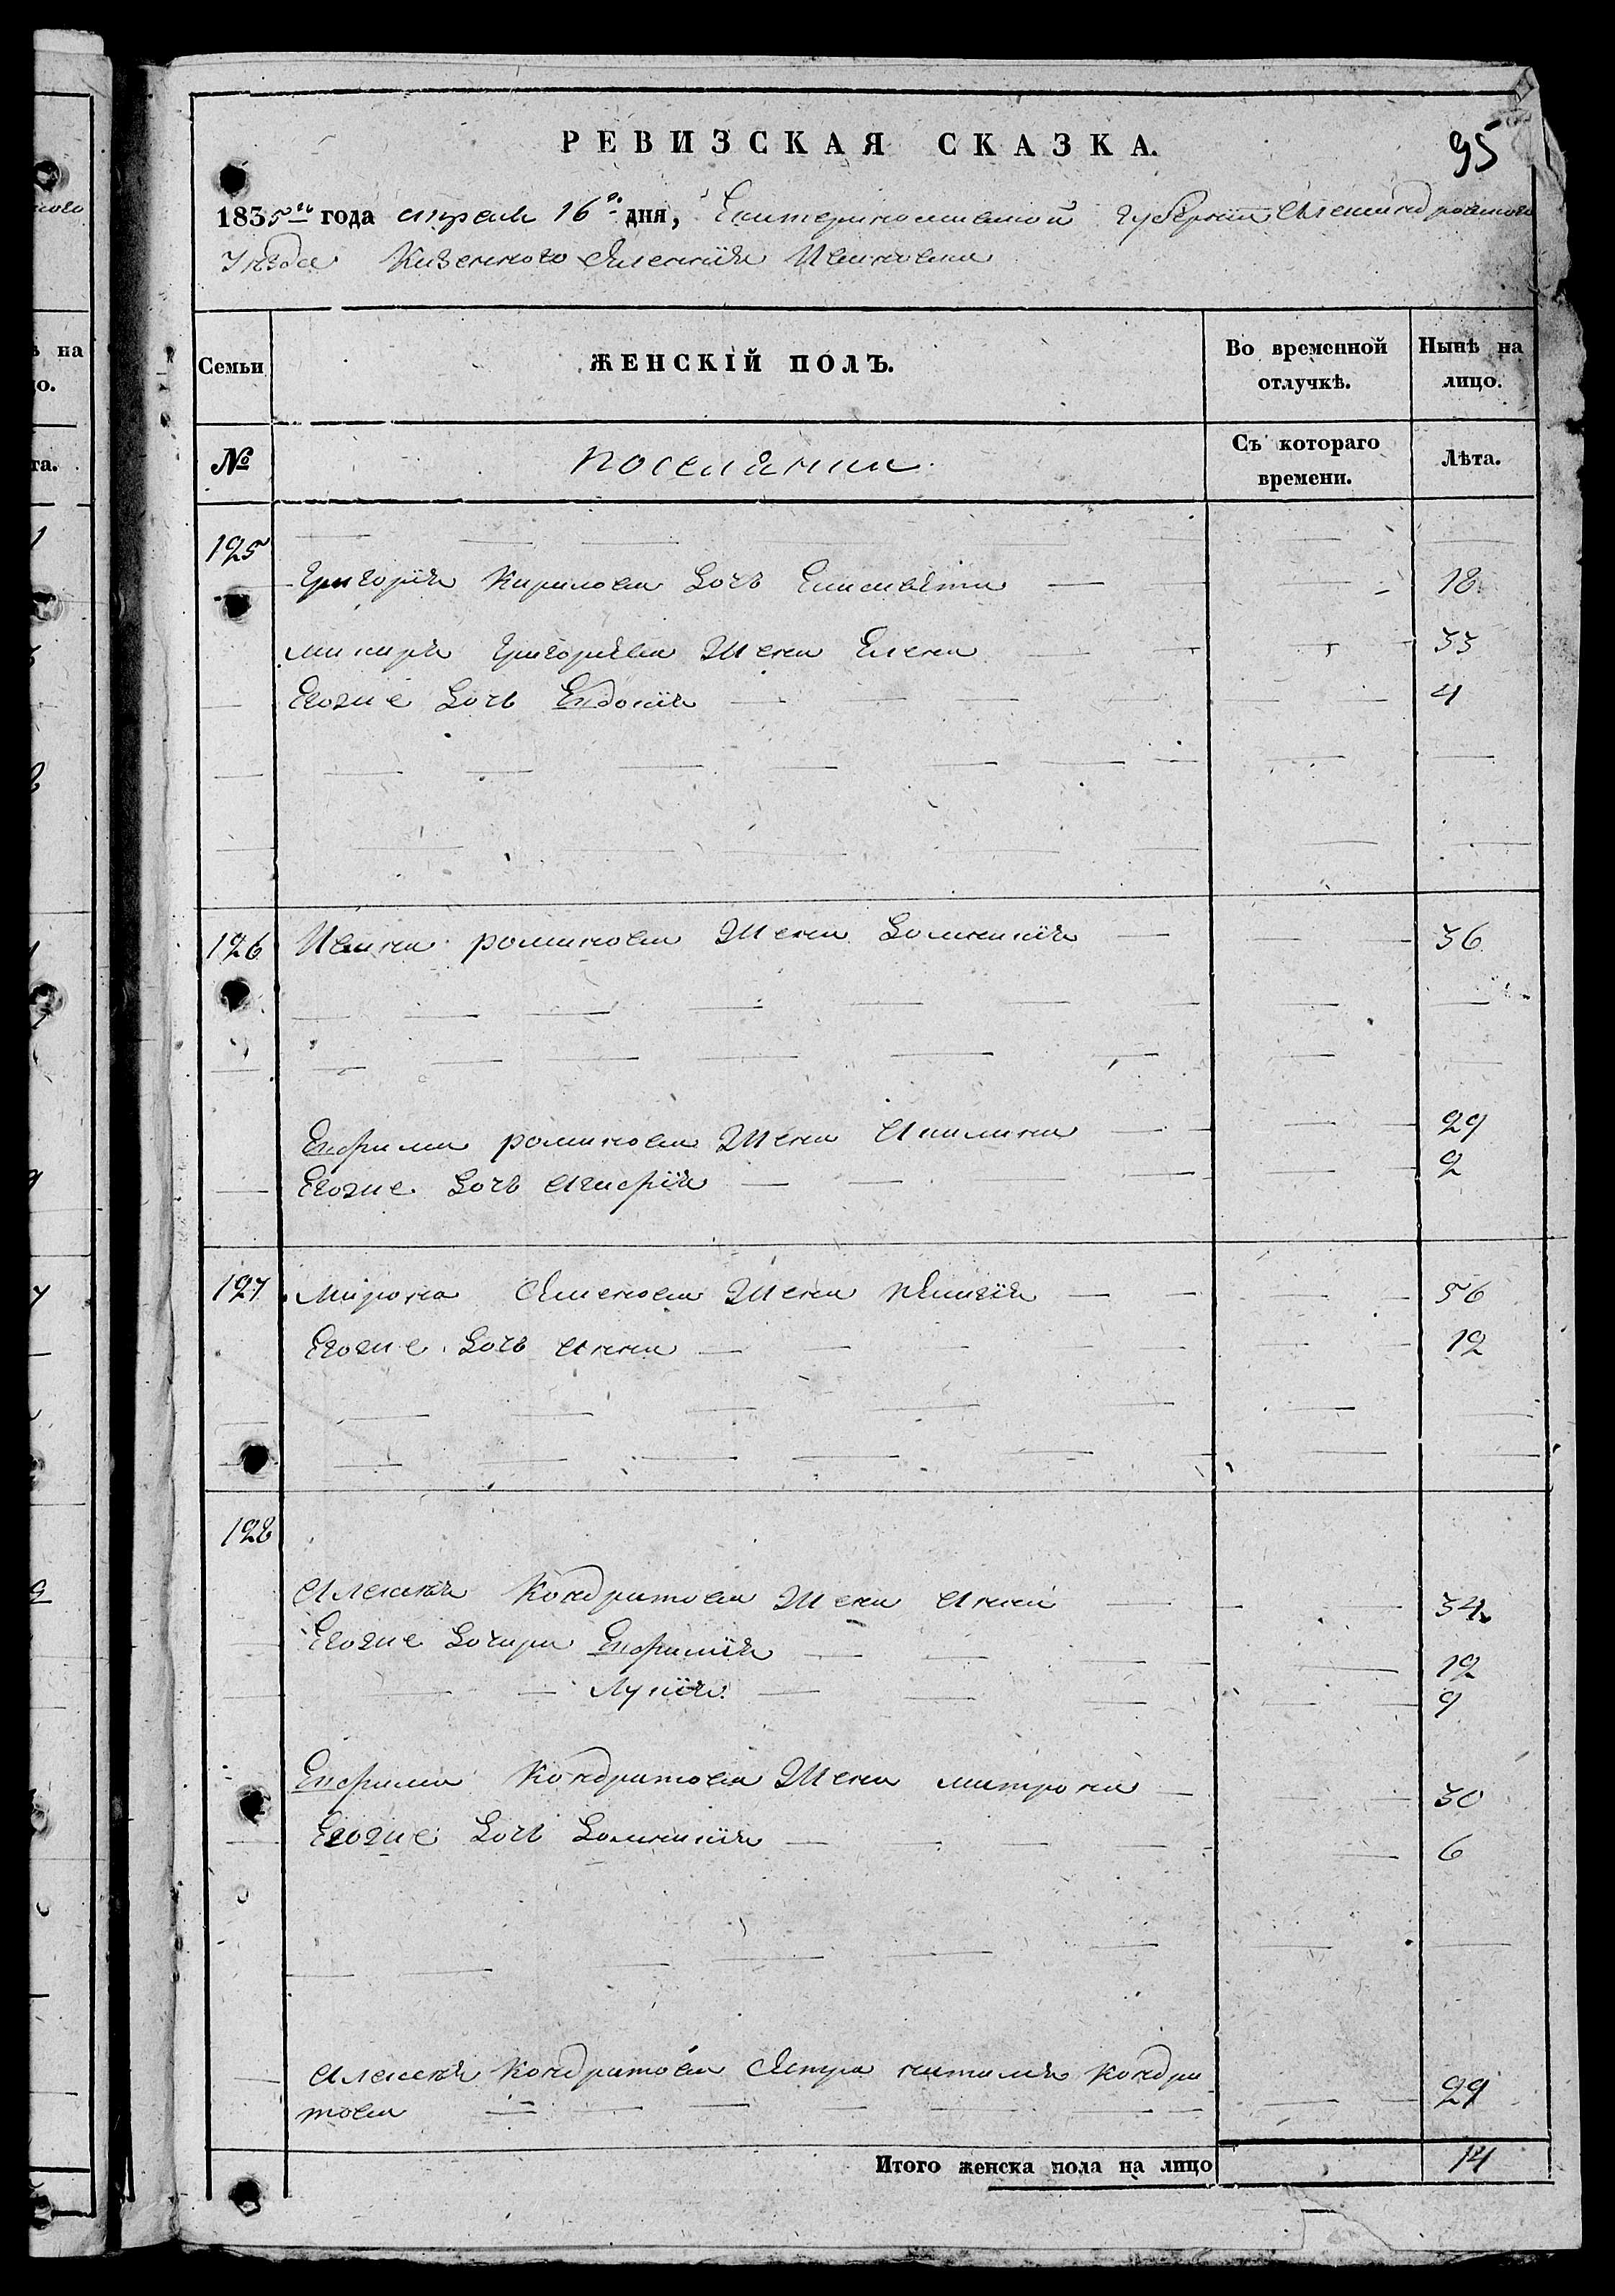 РЕВИЗСКАЯ СКАЗКА.
95
1835го года апреля 16го дня, Екатеринославской губернии Александровского
Уезда Казенного Селения Ивановки
Семьи
ЖЕНСКІЙ ПОЛЪ.
Во временной отлучкѣ.
Нынѣ на лицо.
№
поселянки
Съ котораго времени.
Лѣта.
125
Григорія Кирилова Дочь Елисавета 18
Макара Григорьева Жена Елена 33
Егоже Дочь Евдокія 4
126 Ивана романова Жена Домникія 36
Ефрима романова Жена Акилина 29
Егоже Дочь Агафія 2
127 Мирона Семенова Жена 56
Егоже Дочь Анна 12
128
Алексея Кондратова Жена Анна 34
Егоже Дочери Ефримія 12
Лукія 9
Ефрима Кондратова Жена матрона 30
Егоже Дочь Домникія 6
Алексея Кондратова Сестра наталья Кондра
това 29
Итого женска пола на лицо 14